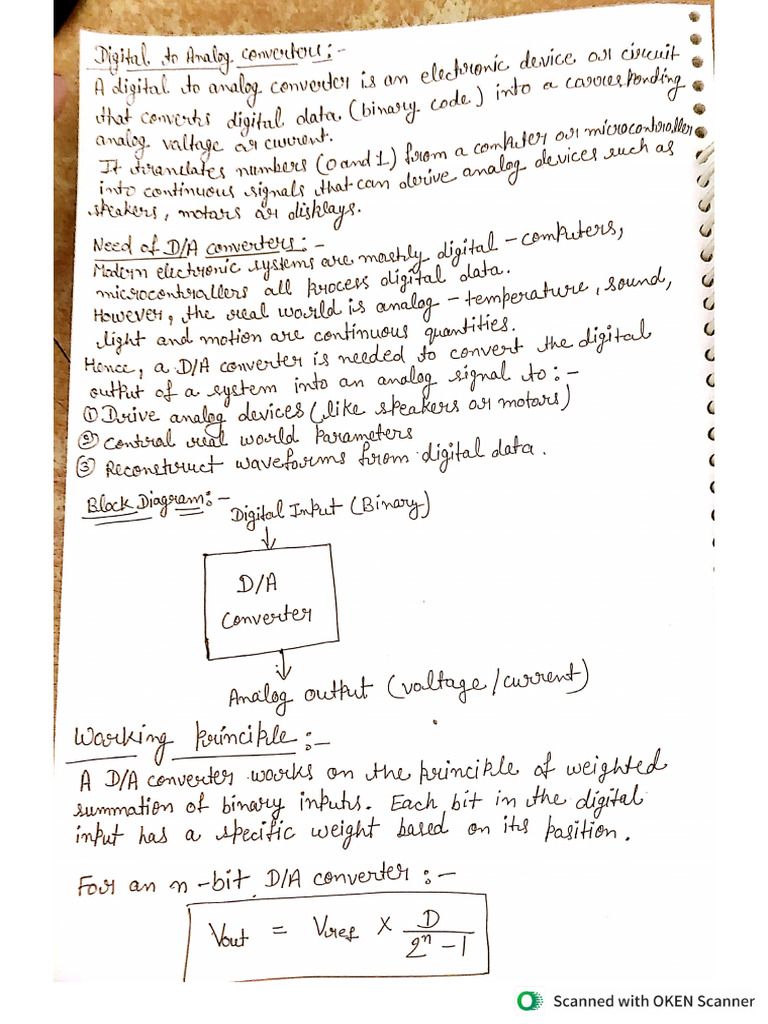 Digital to Analog Converters:-
A digital to analog converter is an electronic device or circuit
that converts digital data (binary code) into a corresponding
analog voltage or current.
It translates numbers (0 and 1) from a computer or microcontroller
into continuous signals that can derive analog devices such as
speakers, motors or displays.
Need of D/A converters:-
Modern electronic systems are mostly digital - computers,
microcontrollers all process digital data.
However, the real world is analog - temperature, sound,
light and motion are continuous quantities.
Hence, a D/A converter is needed to convert the digital
output of a system into an analog signal to:-
① Drive analog devices (like speakers or motors)
② Control real world parameters
③ Reconstruct waveforms from digital data.
Block Diagram:-
Digital Input (Binary)
D/A
Converter
Analog output (voltage/current)
Working Principle:-
A D/A converter works on the principle of weighted
summation of binary inputs. Each bit in the digital
input has a specific weight based on its position.
For an n-bit D/A converter:-
Vout = Vref × D / 2ⁿ - 1
Scanned with OKEN Scanner